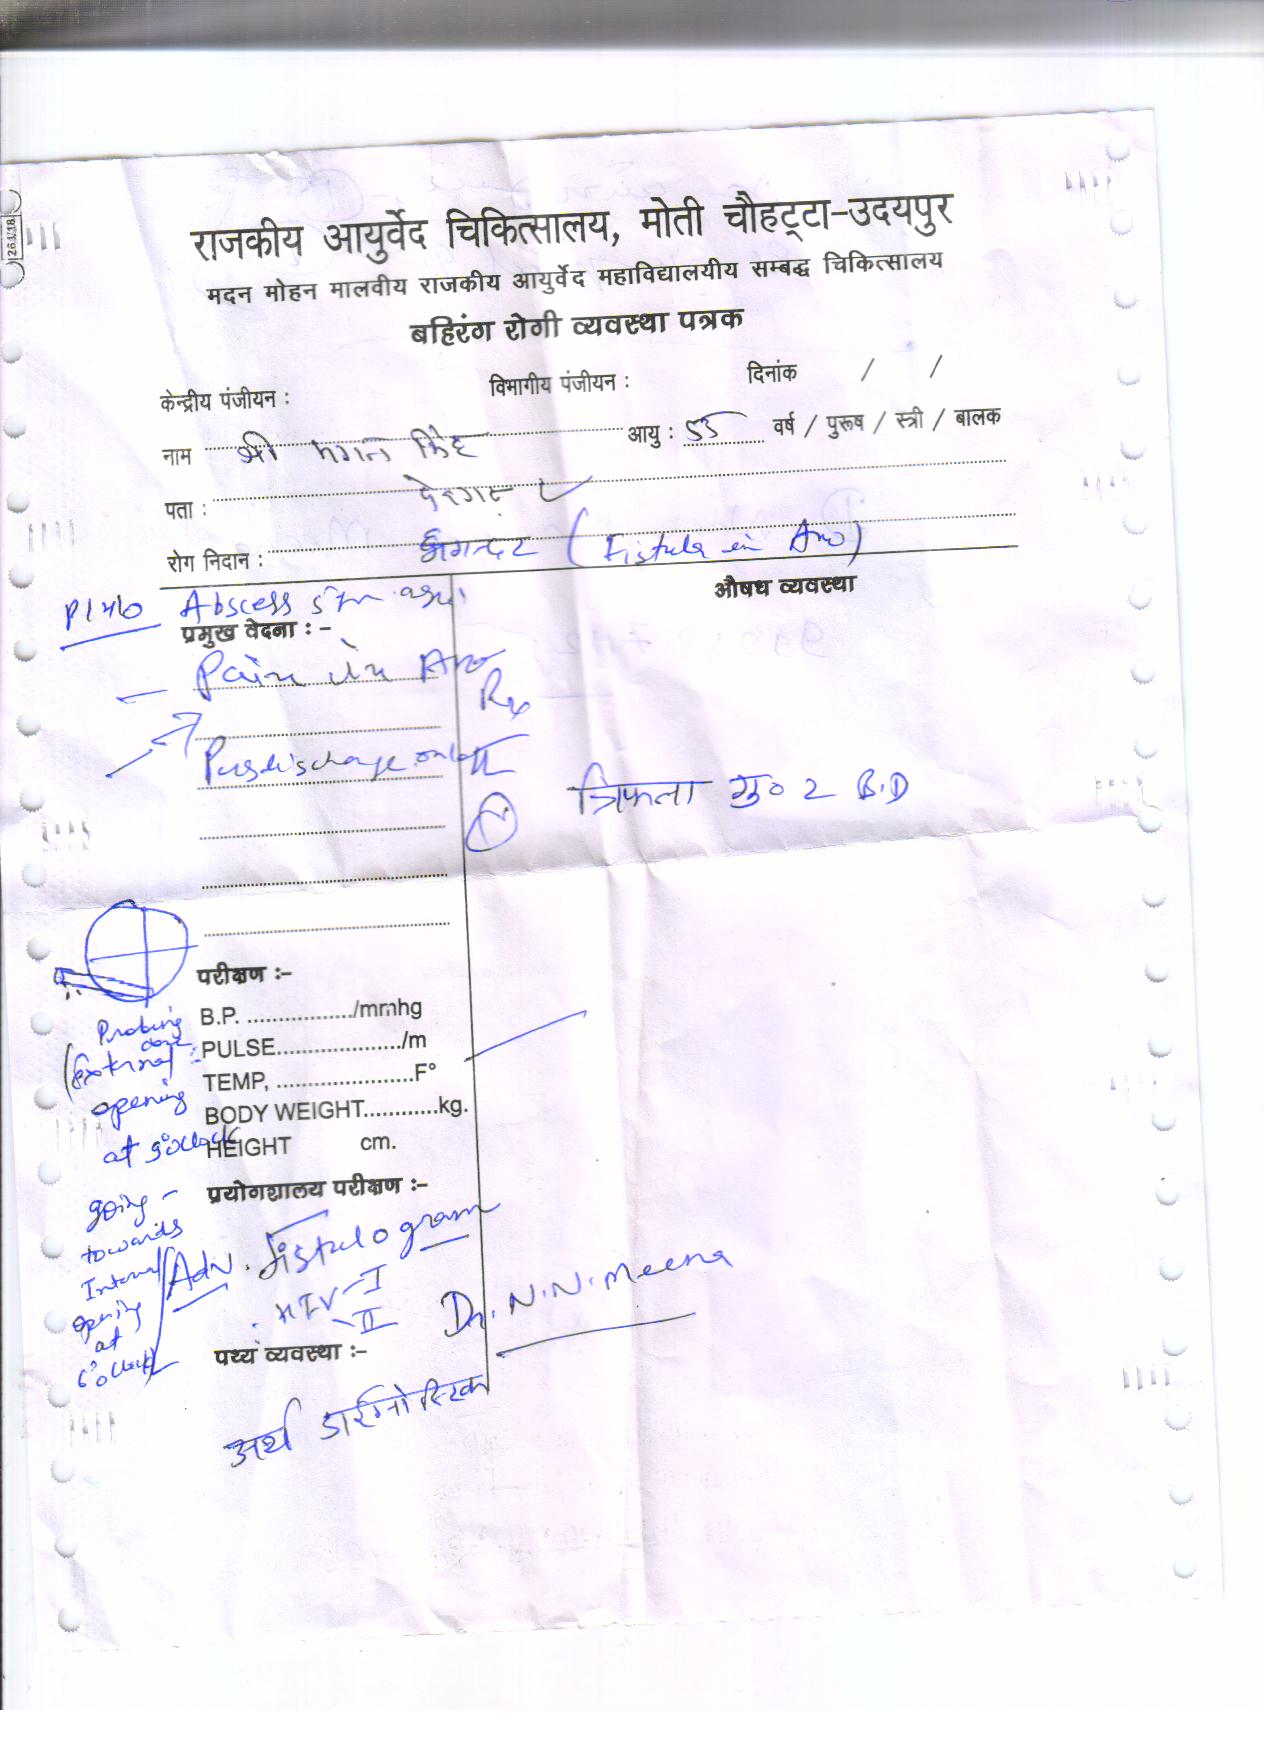 राजकीय आयुर्वेद चिकित्सालय, मोती चौहट्टा-उदयपुर
मदन मोहन मालवीय राजकीय आयुर्वेद महाविद्यालयीय सम्बद्ध चिकित्सालय
बहिरंग रोगी व्यवस्था पत्रक
केन्द्रीय पंजीयन : विभागीय पंजीयन : दिनांक / /
नाम श्री मगन सिंह आयु : 55 वर्ष / पुरूष / स्त्री / बालक
पता :
रोग निदान : भगन्दर (Fistula in Ano)
Abscess
औषध व्यवस्था
प्रमुख वेदना :-
Pain in Ano
Rx
Pus discharge
त्रिफला गु० 2 B.D
परीक्षण :-
B.P. ................./mmhg
PULSE..................../m
TEMP, ......................F°
BODY WEIGHT............kg.
HEIGHT cm.
Probing
done
(External
opening
at 9°Clock
going -
towards
Internal
opening
at
6°Clock)
प्रयोगशालय परीक्षण :-
Adv. Fistulogram
. HIV - I
- II
Dr. N.N. Meena
पथ्य व्यवस्था :-
अर्थ डाईग्नोस्टिक